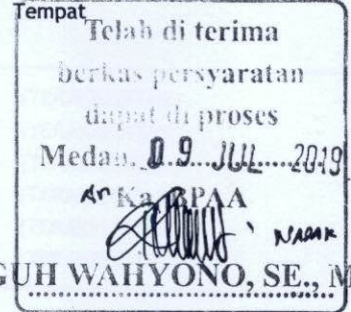 Tempat
Telah di terima
berkas persyaratan
dapat di proses
Medan, 09 JUL 2019
An Ka. BPAA
GUH WAHYONO, SE., M